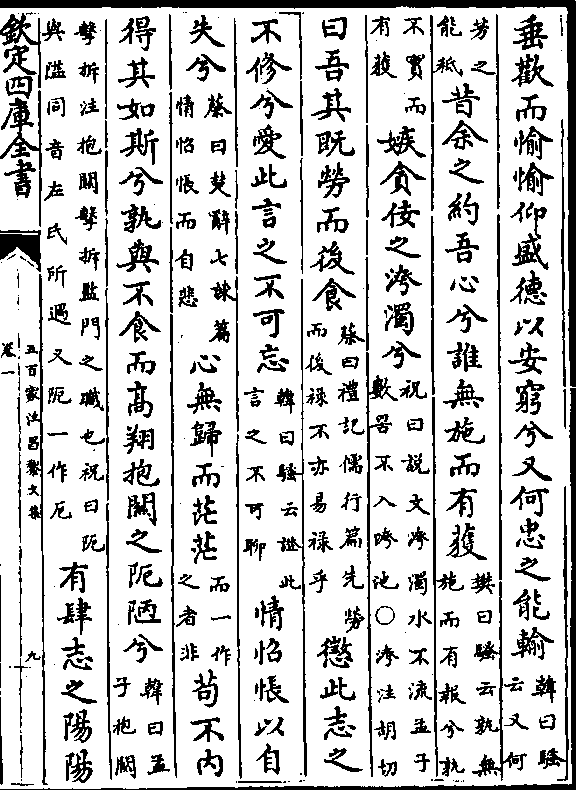 垂歡而愉愉仰盛德以安窮兮又何忠之能輸韓曰騷云又何
芳之能祗昔余之約吾心兮誰無施而有獲樊曰騷云孰無施而有報兮孰
不實而有穫嫉貪佞之洿濁兮祝曰說文洿濁水不流孟子數罟不入洿池○洿注胡切
曰吾其既勞而後食蔡曰禮記儒行篇先勞而後禄不亦易禄乎懲此志之
不修兮愛此言之不可忘韓曰騷云證此言之不可聊情怊悵以自
失兮蔡曰楚辭七諫篇情怊悵而自悲心無歸而茫茫而一作之者非苟不内
得其如斯兮孰與不食而高翔抱關之阨陋兮韓曰孟子抱關
擊拆注抱關擊拆監門之職也祝曰阨與隘同音左氏所遏又阨一作厄有肆志之陽陽
欽定四庫全書
五百家注昌黎文集
卷一
九